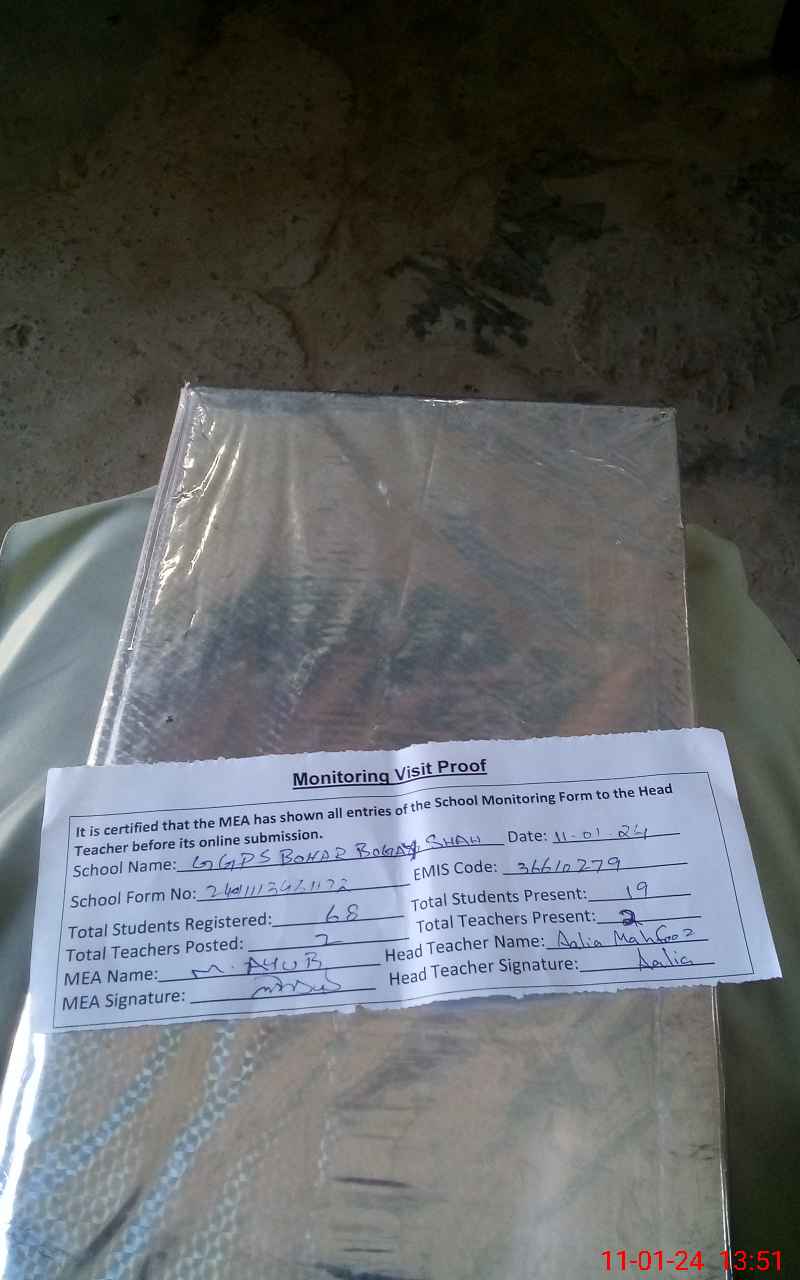 Monitoring Visit Proof
It is certified that the MEA has shown all entries of the School Monitoring Form to the Head
Teacher before its online submission.
School Name: GGPS BOHAR SHAH Date: 11-01-24
School Form No: EMIS Code: 36610279
Total Students Registered: 68 Total Students Present: 19
Total Teachers Posted: 2 Total Teachers Present: 2
MEA Name: M. AYUB Head Teacher Name: Aalia Mahfooz
MEA Signature: Head Teacher Signature: Aalia
11-01-24 13:51